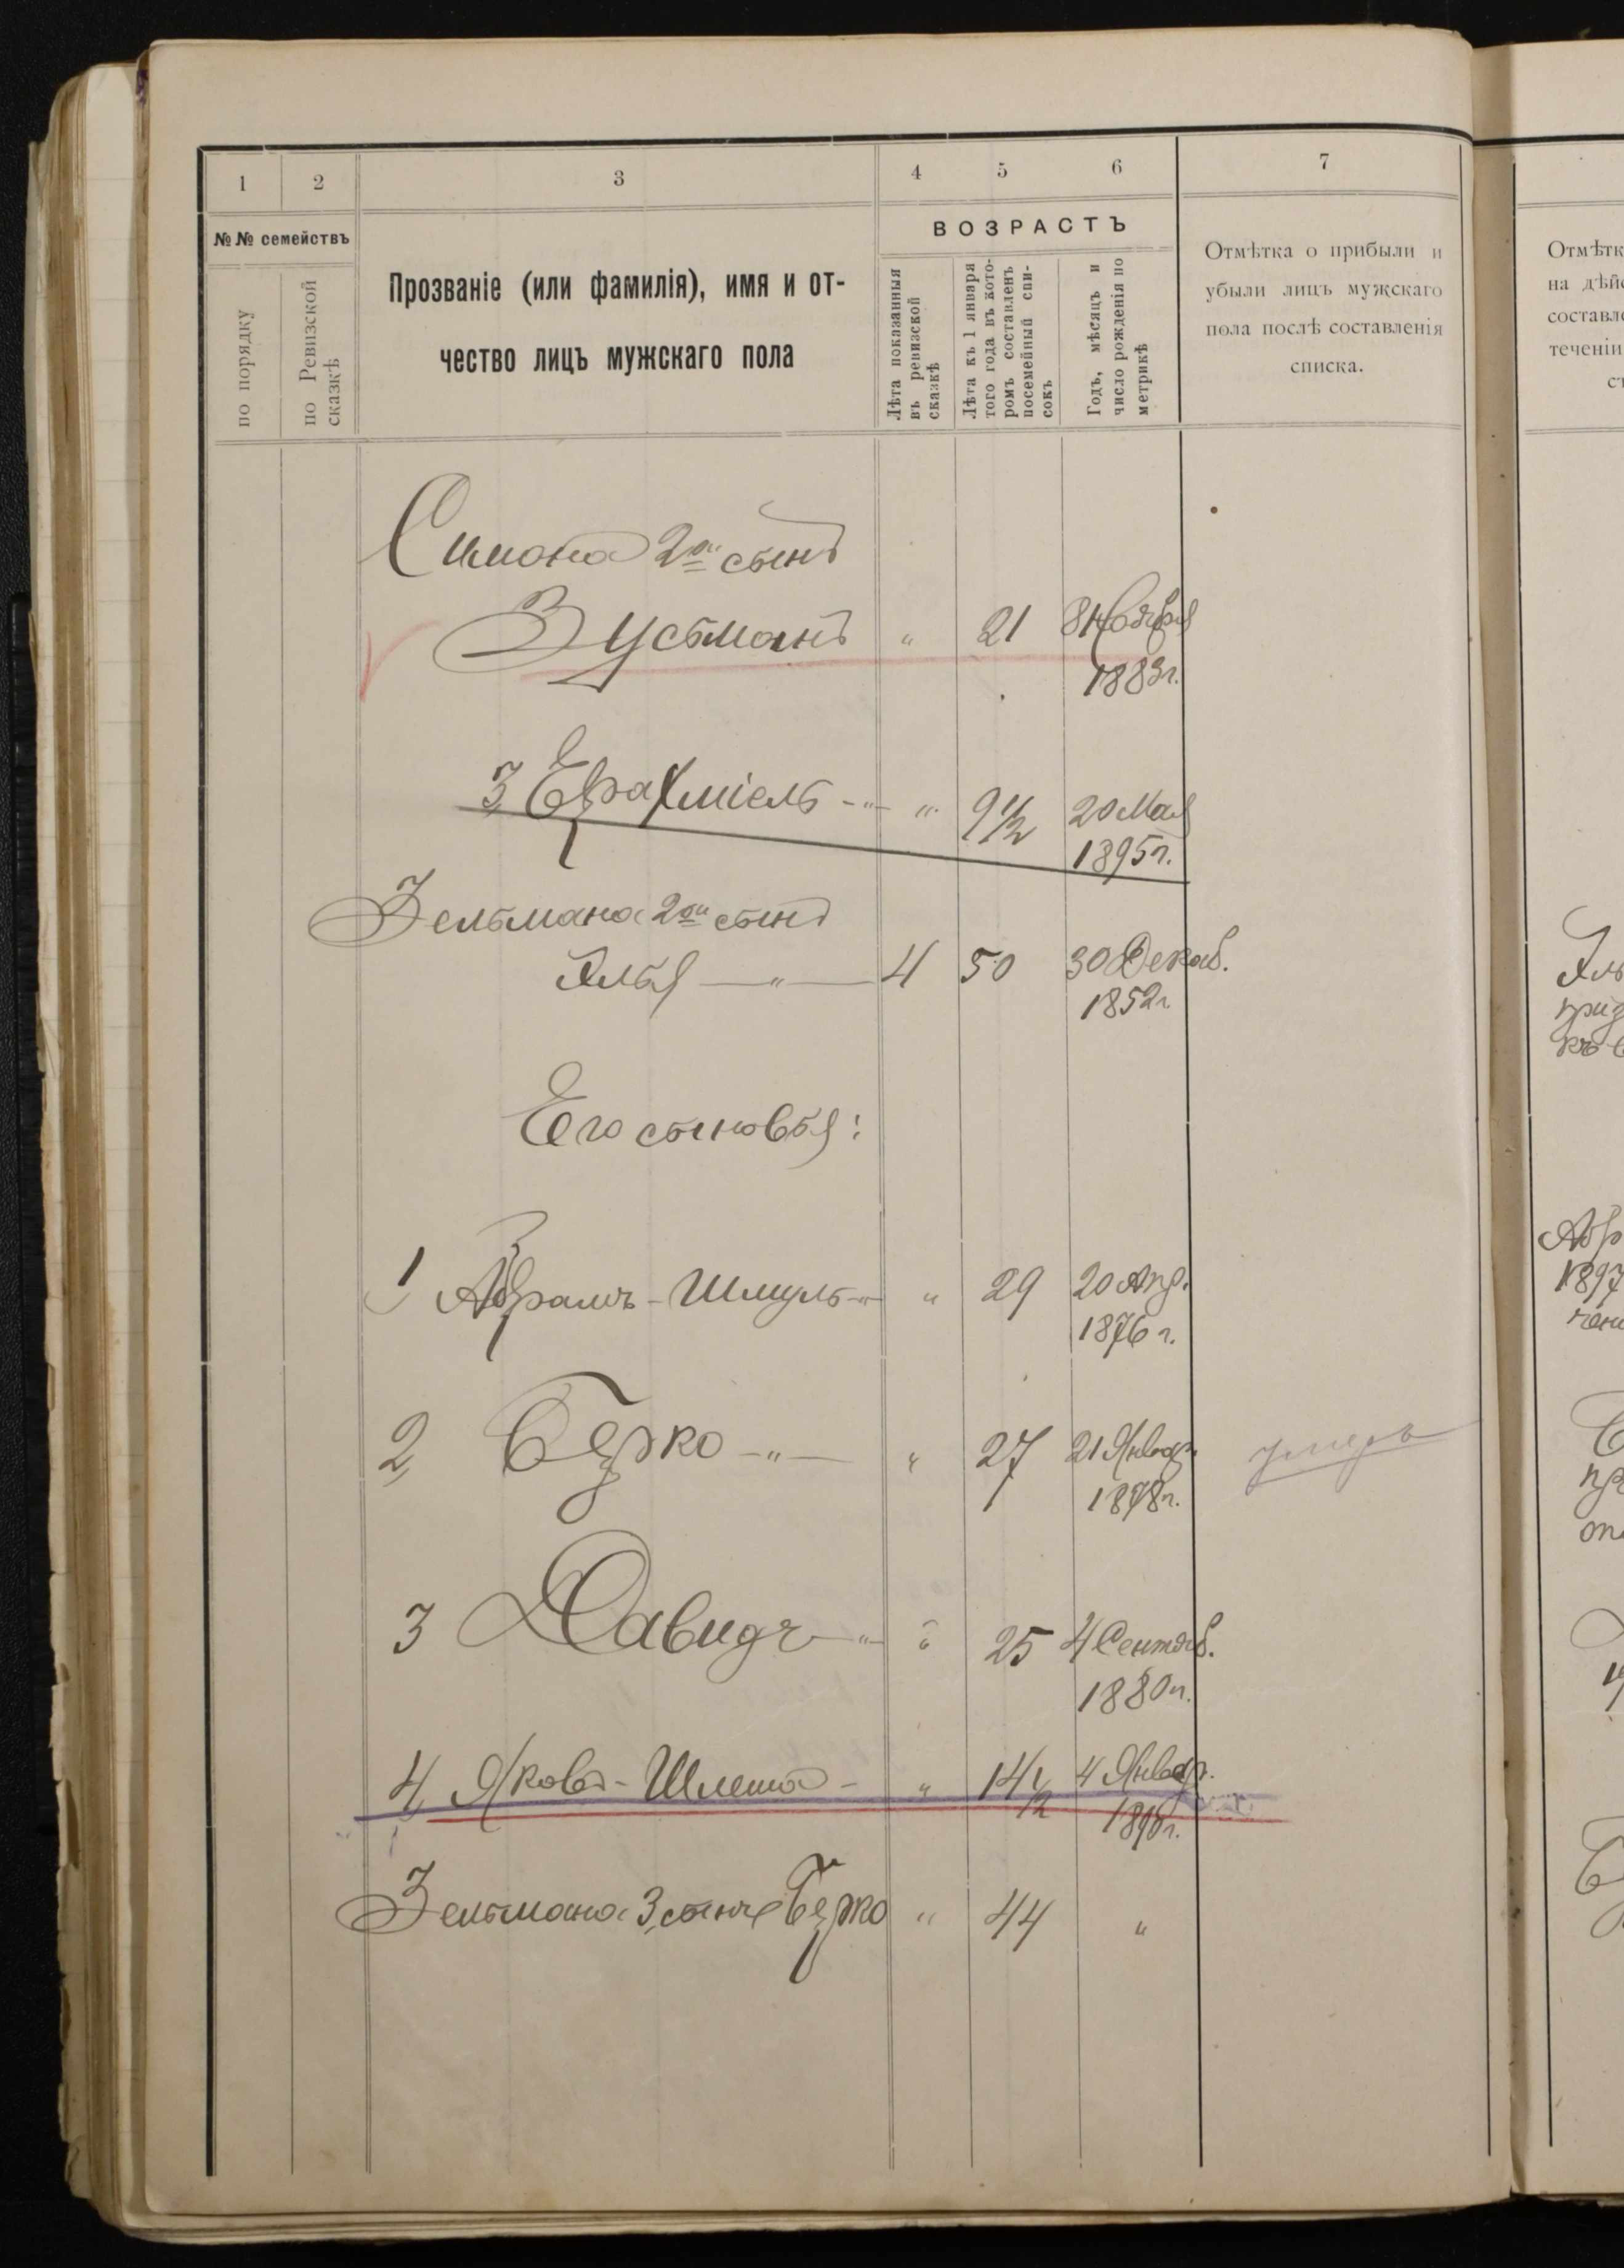 1 2 3 4 5 6 7
№ № семействъ
по порядку
по Ревизской
сказкѣ
Прозваніе (или фамилія), имя и от-
чество лицъ мужскаго пола
ВОЗРАСТЪ
Лѣта показанныя
въ ревизской
сказкѣ
Лѣта къ 1 января
того года въ кото-
ромъ составленъ
посемейный спи-
сокъ
Годъ, мѣсяцъ и
число рожденія по
метрикѣ
Отмѣтка о прибыли и
убыли лицъ мужскаго
пола послѣ составленія
списка.
Симона 2ой сынъ
Зусьманъ " 21 8 Ноября
1883 г.
3 Ерахміель -"- " 9 1/2 20 Мая
1895 г.
Зельмана 2ой сынъ
Элья -"- 4 50 30 Декаб.
1852 г
Его сыновья:
1 Абрамъ-Шмуль -"- " 29 20 Апр.
1876 г.
2 Берко -"- " 27 21 Январ.
1878 г. умеръ
3 Давидъ -"- " 25 4 Сентяб.
1880 г.
4 Яковъ-Шлема - " 14 1/2 4 Январ.
1890 г.
Зельмана 3 сынъ Берко " 44 "
Отмѣтк
на дѣйс
составле
теченіи
Эль
къ
Абр
1897